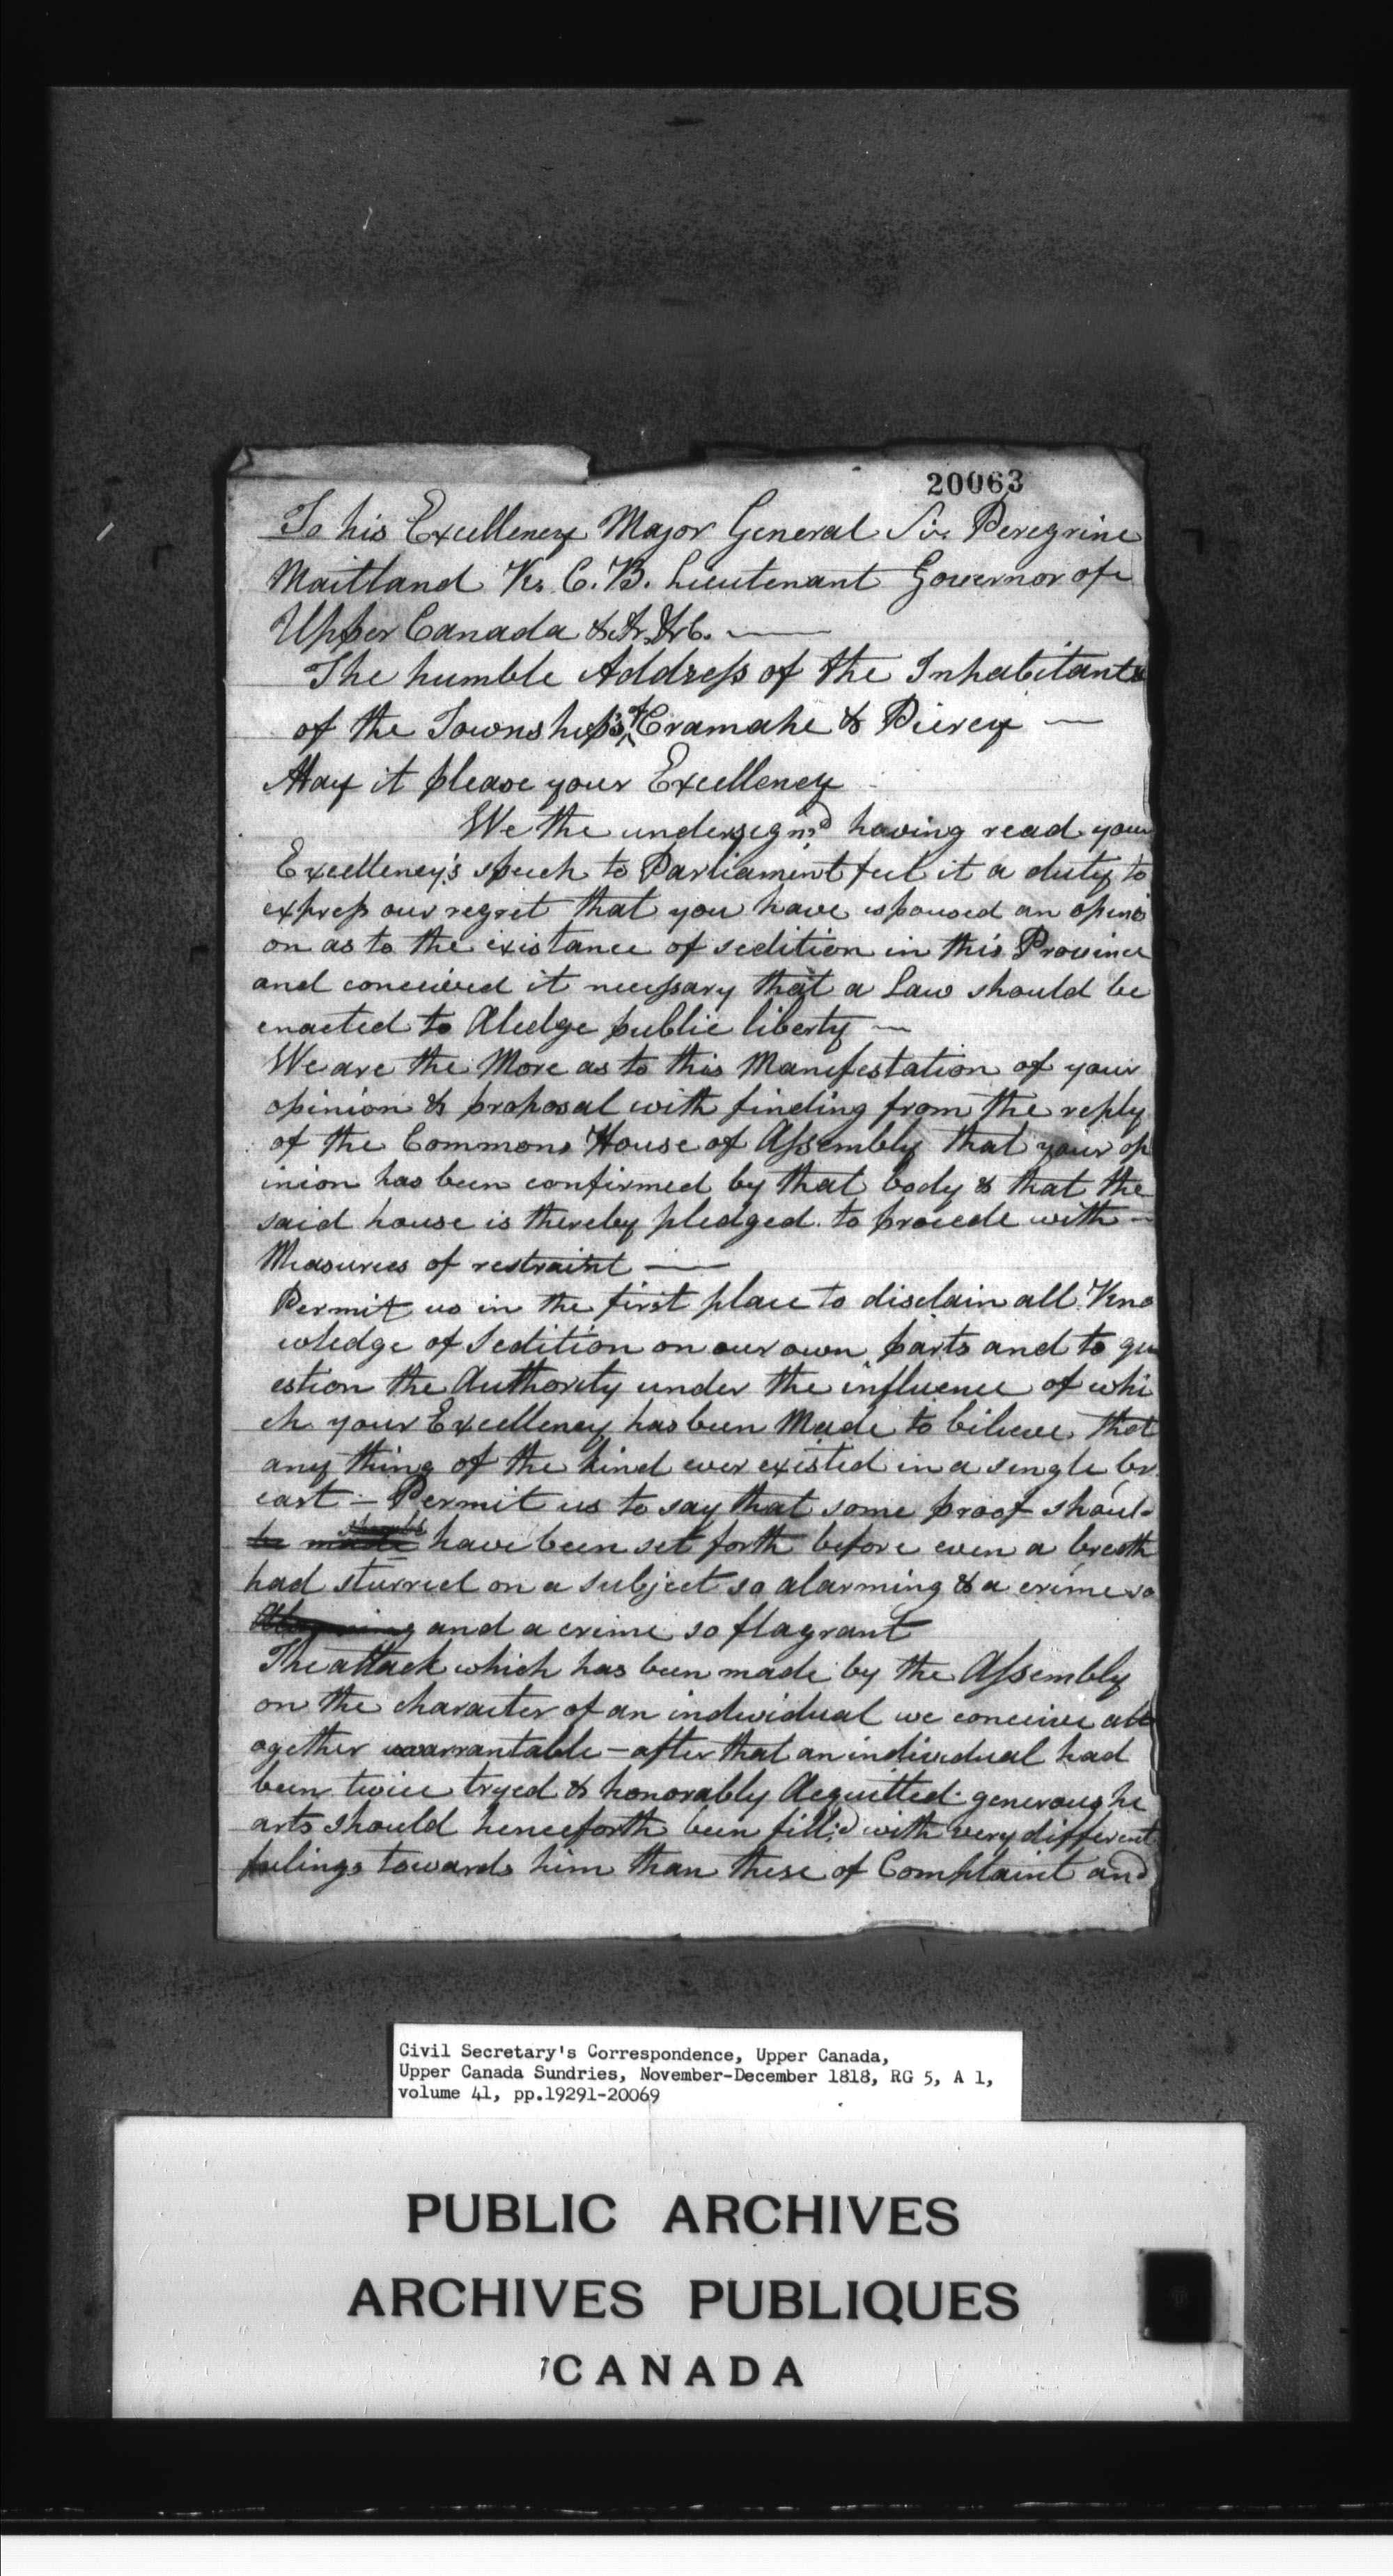 20063
To his Excellency Major General Sir Peregrine
Maitland K. C. B. Lieutenant Governor of
Upper Canada &c. &c. &c.
The humble Address of the Inhabitants
of the Townships of Cramahe & Piercy
May it please your Excellency
We the undersign'd having read your
Excellency's speech to Parliament feel it a duty to
express our regret that you have espoused an opini
on as to the existance of sedition in this Province
and conceived it necessary that a Law should be
enacted to Aledge public liberty
We are the More as to this Manifestation of your
opinion & proposal with finding from the reply
of the Commons House of Assembly that your op
inion has been confirmed by that body & that the
said house is thereby pledged to procede with
Measures of restraint
Permit us in the first place to disclain all Kno
wledge of Sedition on our own parts and to qu
estion the Authority under the influence of whi
ch your Excellency has been Made to bilieve that
any thing of the kind ever existed in a single br
east - Permit us to say that some proof should
be made should have been set forth before even a breath
had sturred on a subject so alarming & a crime so
Alarming and a crime so flagrant
The attack which has been made by the Assembly
on the character of an individual we conceive alt
ogether unwarrantable - after that an individual had
been twice tryed & honorably Acquitted generous he
arts should henceforth been fill'd with very different
feelings towards him than these of Complaint and
Civil Secretary's Correspondence, Upper Canada,
Upper Canada Sundries, November-December 1818, RG 5, A 1,
volume 41, pp.19291-20069
PUBLIC ARCHIVES
ARCHIVES PUBLIQUES
CANADA